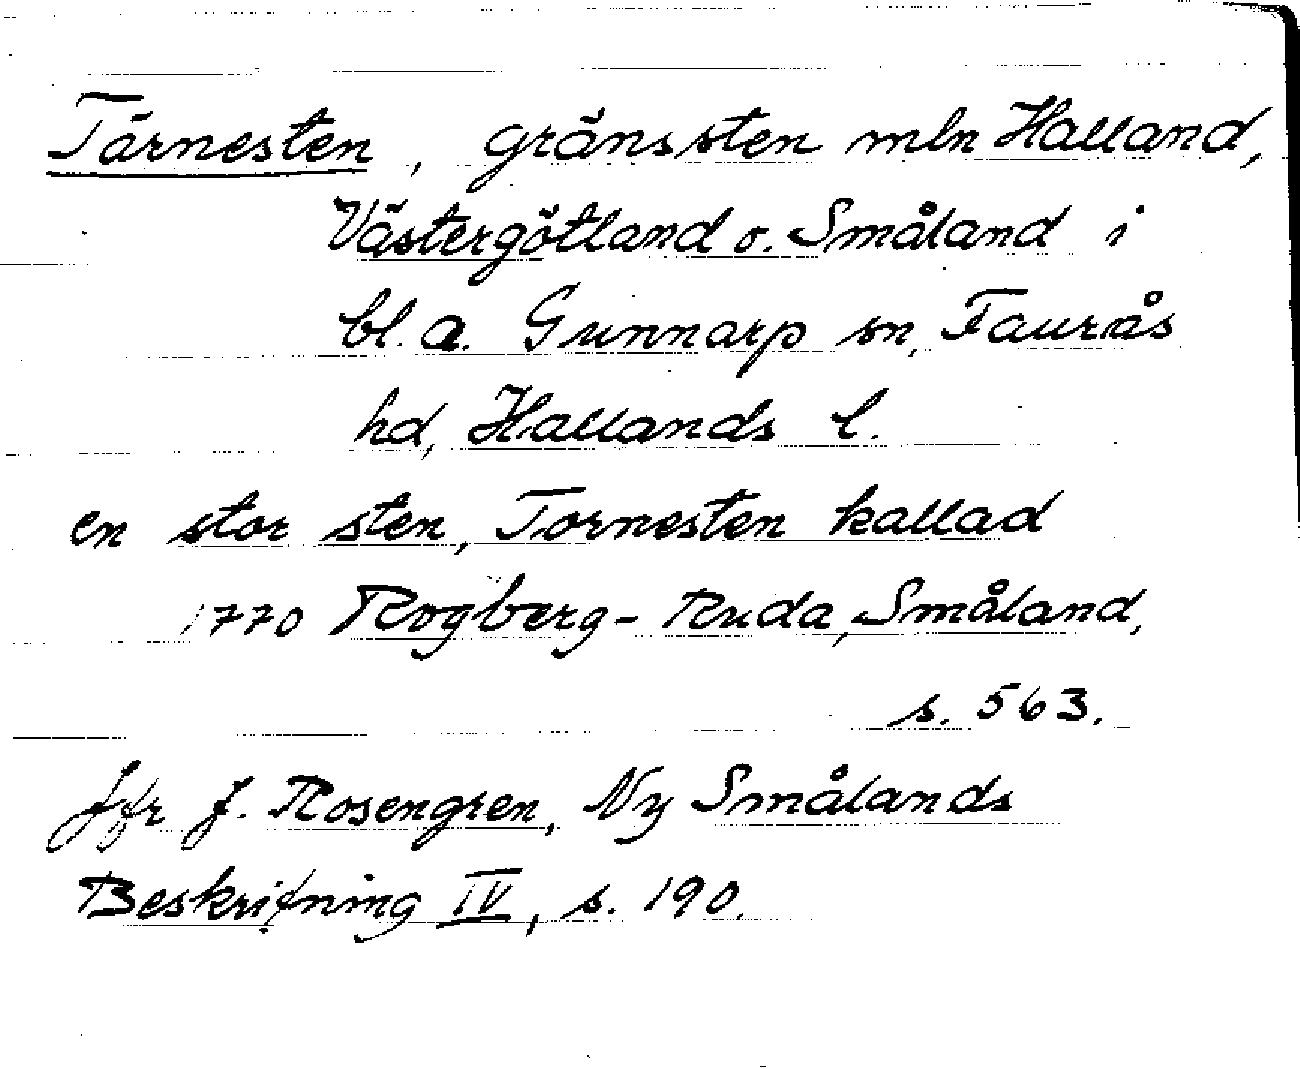 Tärnesten, gränssten mln Halland,
Västergötland o. Småland i
bl.a. Gunnarp sn, Faurås
hd, Hallands l.
en stor sten, Tornesten kallad
1770 Rogberg-Ruda, Småland,
s. 563.
Jfr J. Rosengren, Ny Smålands
Beskrifning IV, s. 190.